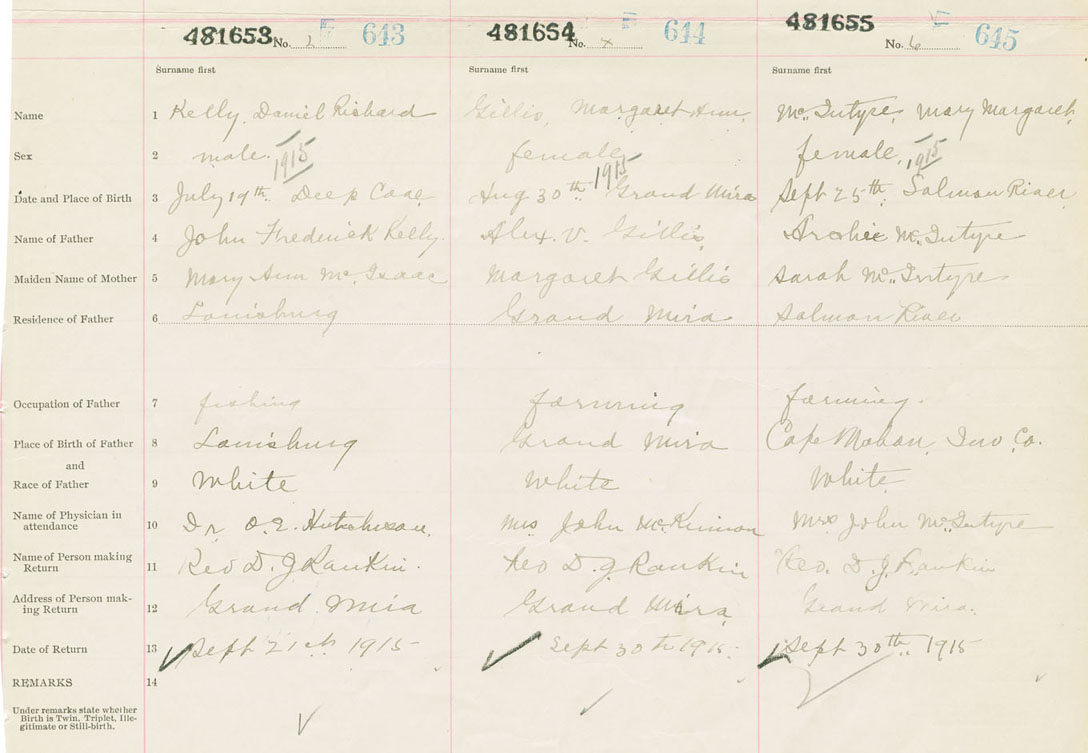 481653 No. 2 643 481654 No. 4 644 481655 No. 6 645
Surname first Surname first Surname first
Name 1 Kelly, Daniel Richard Gillis, Margaret Ann, Mc. Intyre, Mary Margaret,
Sex 2 male. 1915 female 1915 female, 1915
Date and Place of Birth 3 July 19th. Deep Cove Aug 30th. Grand Mira Sept 25th, Salmon River
Name of Father 4 John Frederick Kelly. Alex. V. Gillis, Archie Mc. Intyre
Maiden Name of Mother 5 Mary Ann Mc. Isaac Margaret Gillis Sarah Mc. Intyre
Residence of Father 6 Louisburg Grand Mira Salmon River
Occupation of Father 7 fishing farming farming.
Place of Birth of Father 8 Louisburg Grand Mira Cape Mabou, Inv Co.
and
Race of Father 9 White White White
Name of Physician in
attendance 10 Dr O. E. Hutchison, Mrs John McKinnon Mrs John Mc. Intyre
Name of Person making
Return 11 Rev D. J Rankin. Rev D. J Rankin Rev. D. J. Rankin
Address of Person mak-
ing Return 12 Grand Mira Grand Mira, Grand Mira.
Date of Return 13 Sept 21st 1915 Sept 30th 1915. Sept 30th. 1915
REMARKS 14
Under remarks state whether
Birth is Twin, Triplet, Ille-
gitimate or Still-birth.